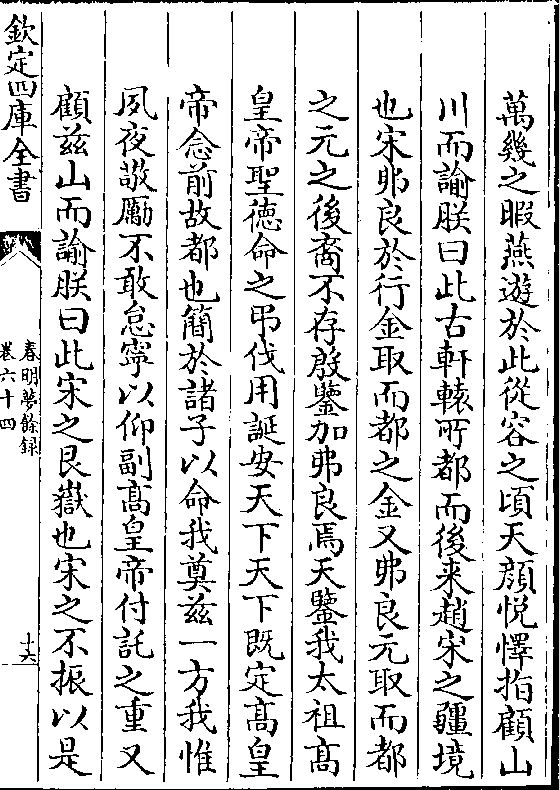 萬幾之暇燕遊於此從容之頃天顔悦懌指顧山
川而諭朕曰此古軒轅所都而後来趙宋之疆境
也宋弗良於行金取而都之金又弗良元取而都
之元之後裔不存殷鑒加弗良焉天鑒我太祖髙
皇帝聖徳命之弔伐用誕安天下天下既定髙皇
帝念前故都也簡於諸子以命我奠兹一方我惟
夙夜敬勵不敢怠寧以仰副髙皇帝付託之重又
顧兹山而諭朕曰此宋之艮嶽也宋之不振以是
欽定四庫全書
春明夢餘録
卷六十四
十六